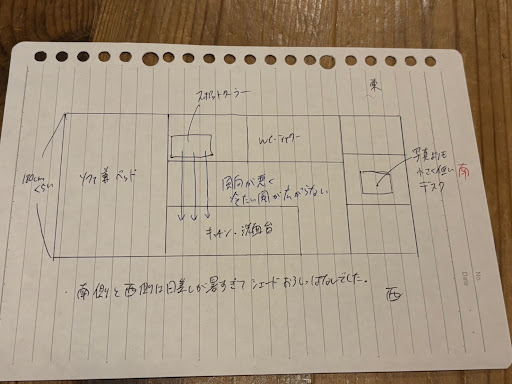 東
スポットクーラー
WC・シャワー
180cm
くらい
ソファ兼ベッド
風向が悪く
冷たい風が広がらない
写真よりも
狭い
デスク
南
キッチン・洗面台
南側と西側は日差しが暑すぎてシェードおろしっぱなしでした。
西
No.
Date